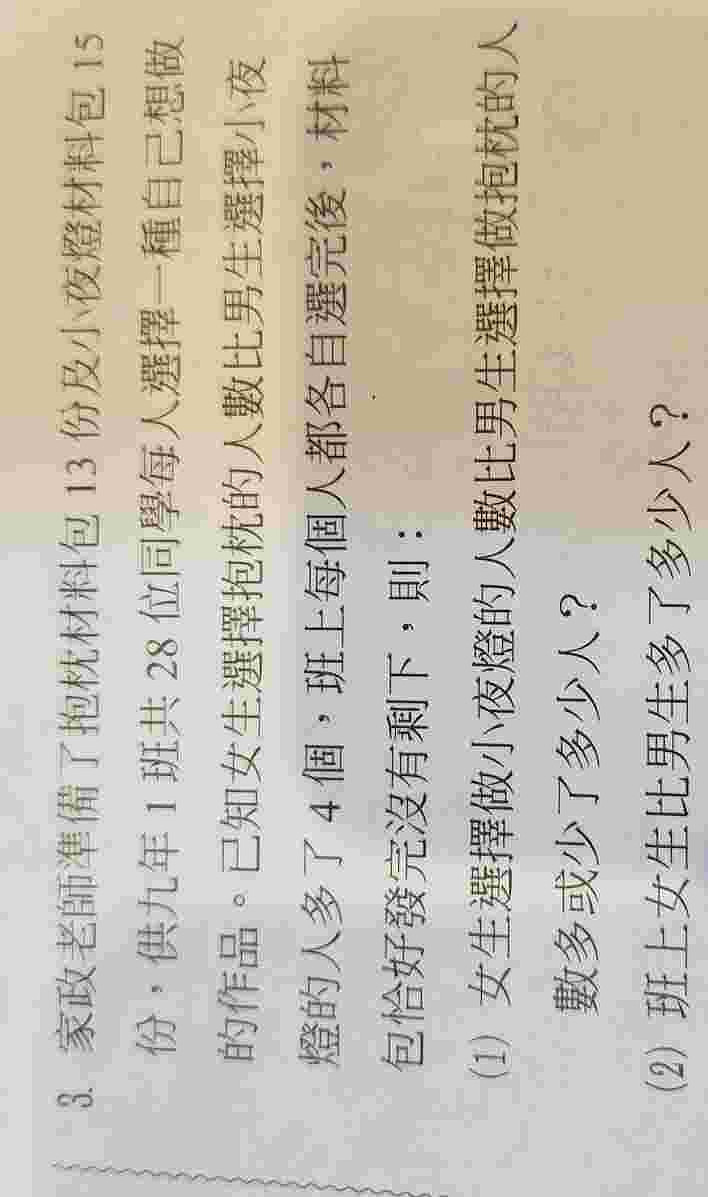 3. 家政老師準備了抱枕材料包 13 份及小夜燈材料包 15
份，供九年 1 班共 28 位同學每人選擇一種自己想做
的作品。已知女生選擇抱枕的人數比男生選擇小夜
燈的人多了 4 個，班上每個人都各自選完後，材料
包恰好發完沒有剩下，則：
(1) 女生選擇做小夜燈的人數比男生選擇做抱枕的人
數多或少了多少人？
(2) 班上女生比男生多了多少人？